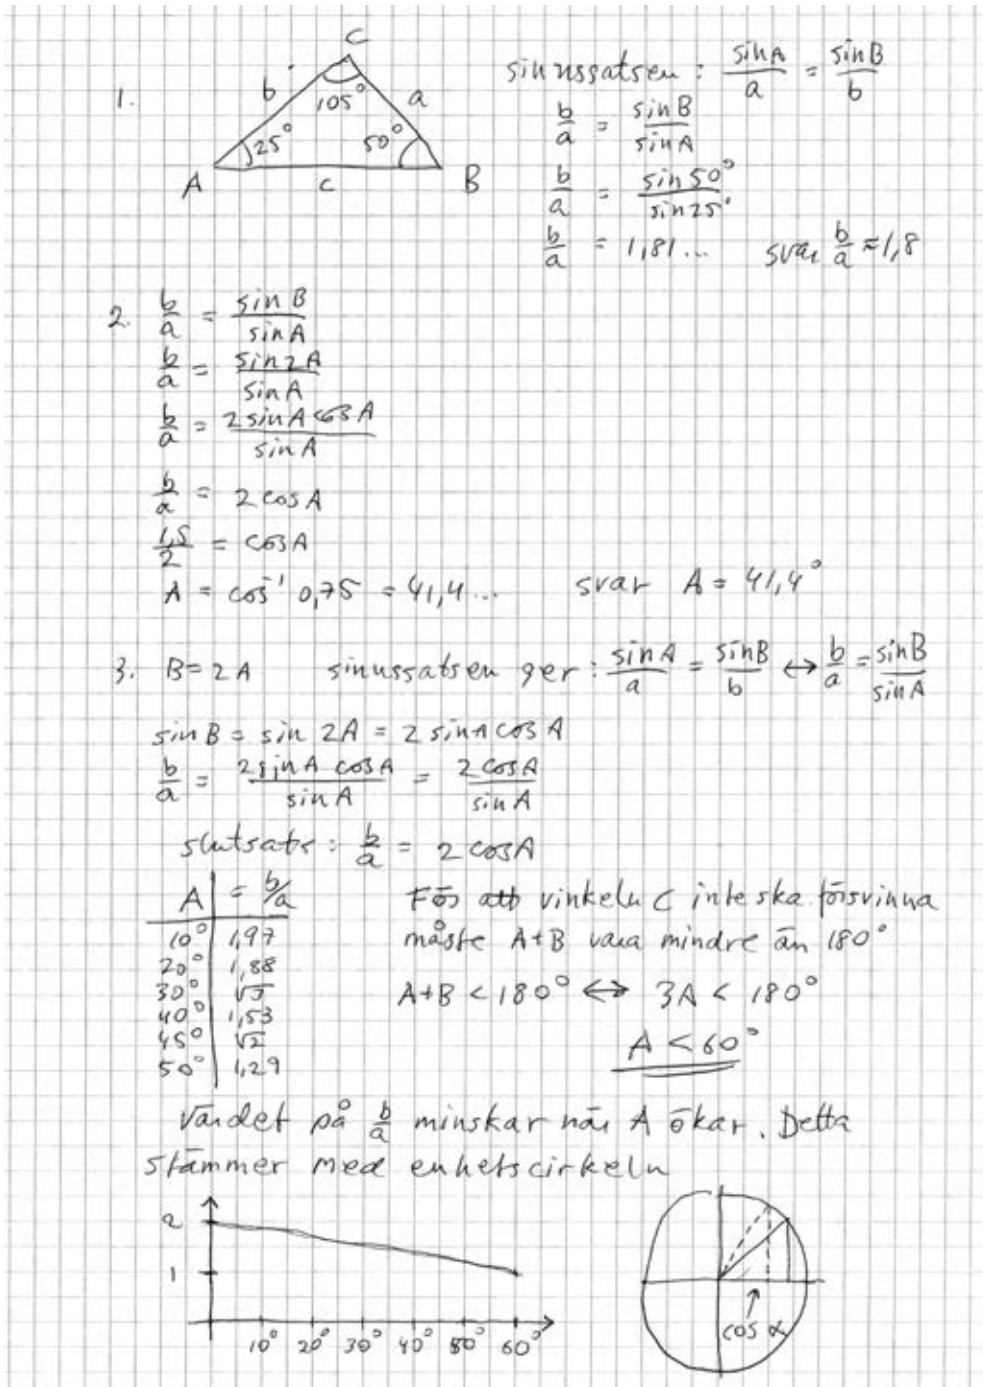 1.
C
b 105° a
25° 50°
A c B
sinussatsen: sinA/a = sinB/b
b/a = sinB/sinA
b/a = sin50°/sin25°
b/a = 1,81... svar b/a ≈ 1,8
2. b/a = sinB/sinA
b/a = sin2A/sinA
b/a = 2sinA cosA/sinA
b/a = 2cosA
1,5/2 = cosA
A = cos⁻¹ 0,75 = 41,4... svar A = 41,4°
3. B=2A sinussatsen ger: sinA/a = sinB/b ↔ b/a = sinB/sinA
sinB = sin 2A = 2 sinA cosA
b/a = 2sinA cosA/sinA = 2cosA/sinA
slutsats: b/a = 2cosA
A = b/a
10° 1,97
20° 1,88
30° √3
40° 1,53
45° √2
50° 1,29
För att vinkeln C inte ska försvinna
måste A+B vara mindre än 180°
A+B < 180° ↔ 3A < 180°
A < 60°
Värdet på b/a minskar när A ökar. Detta
stämmer med enhetscirkeln
2
1
10° 20° 30° 40° 50° 60°
cos α